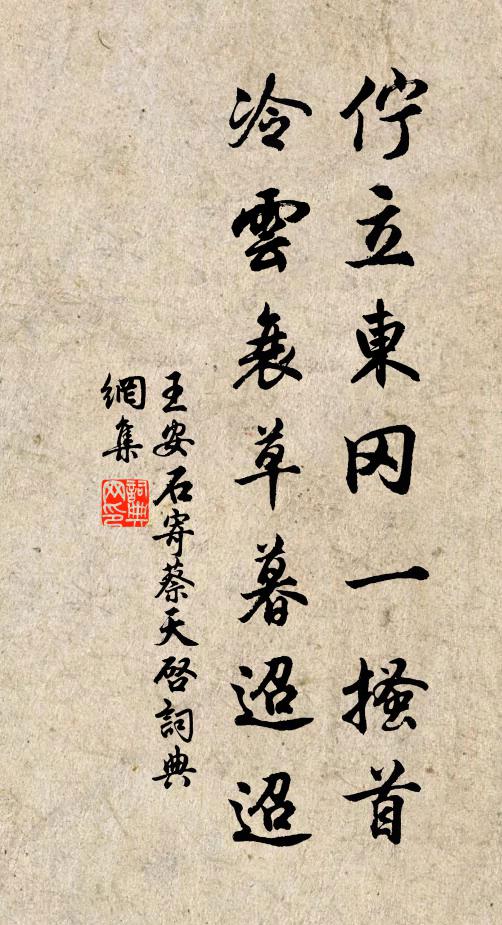 佇立東冈一搔首
冷雲衰草暮迢迢
王安石寄蔡天啓詞典
網集
詞典网印